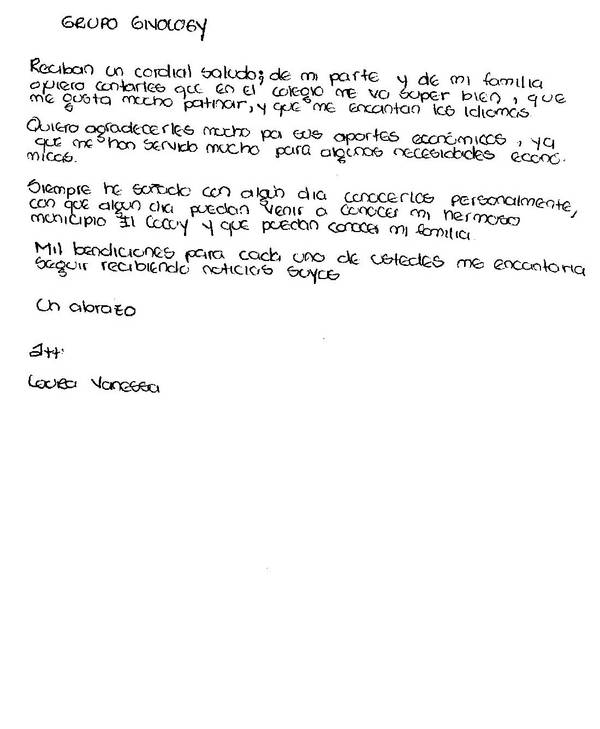 GRUPO GIVOLOGY
Reciban un cordial saludo; de mi parte y de mi familia
quiero contarles que en el colegio me va super bien, que
me gusta mucho patinar, y que me encantan los idiomas
Quiero agradecerles mucho por sus aportes económicos, ya
que me han servido mucho para algunas necesidades econó-
micas.
Siempre he soñado con algún dia conocerlos personalmente,
con que algun dia puedan venir a conocer mi hermoso
municipio El Cocuy y que puedan conocer mi familia.
Mil bendiciones para cada uno de ustedes me encantaria
seguir recibiendo noticias suyas
Un abrazo
Att:
Laura Vanessa